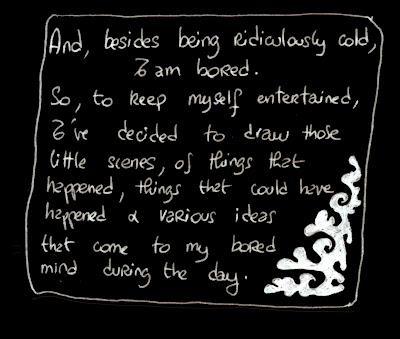 And, besides being ridiculously cold,
I am bored.
So, to keep myself entertained,
I've decided to draw those
little scenes, of things that
happened, things that could have
happened & various ideas
that come to my bored
mind during the day.